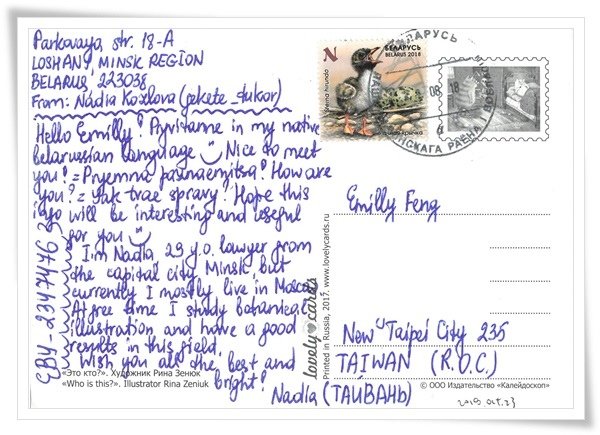 Parkovaya str. 18-A
LOSHANY, MINSK REGION
BELARUS, 223038
From: Nadia Kozlova (fekete_cukor)
Hello Emilly! Pryvitanne in my native
belarussian language Nice to meet
you! = Pryemna paznaemitsa! How are
you? = Yak tvae spravy? Hope this
info will be interesting and useful
for you
I'm Nadia, 29 y.o. lawyer from
the capital city Minsk, but
currently I mostly live in Moscow
At free time I study botanical
illustration and have a good
results in this field.
Wish you all the best and
bright!
Nadia
«Это кто?». Художник Рина Зенюк
«Who is this?». Illustrator Rina Zeniuk
lovely cards
Printed in Russia, 2017. www.lovelycards.ru
N
БЕЛАРУСЬ
BELARUS 2018
Sterna hirundo
БЕЛАРУСЬ
08 18
Emilly Feng
New Taipei City 235
TAIWAN (R.O.C.)
(ТАЙВАНЬ)
© ООО Издательство «Калейдоскоп»
2019.oct.23